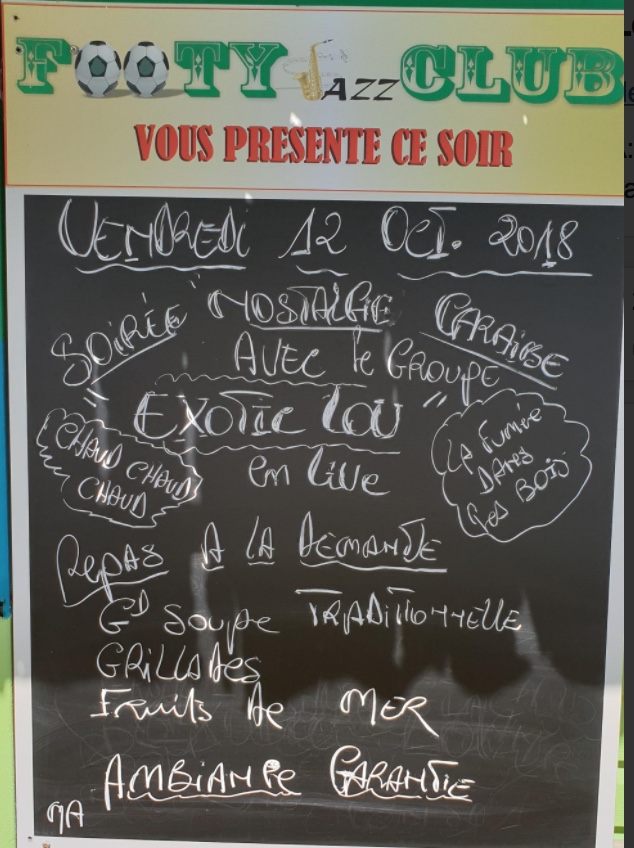 FOOTY JAZZ CLUB
VOUS PRESENTE CE SOIR
VENDREDI 12 OCT. 2018
SOIRÉE "NOSTALGIE CARAIBE"
AVEC le GROUPE
"EXOTIC LOU"
en live
CHAUD CHAUD
CHAUD
LA Fumée
DANS
Les BOIS
Repas A LA DEMANDE
Gd Soupe TRADITIONNELLE
GRILLADES
Fruits de MER
AMBIANCE GARANTIE
MA